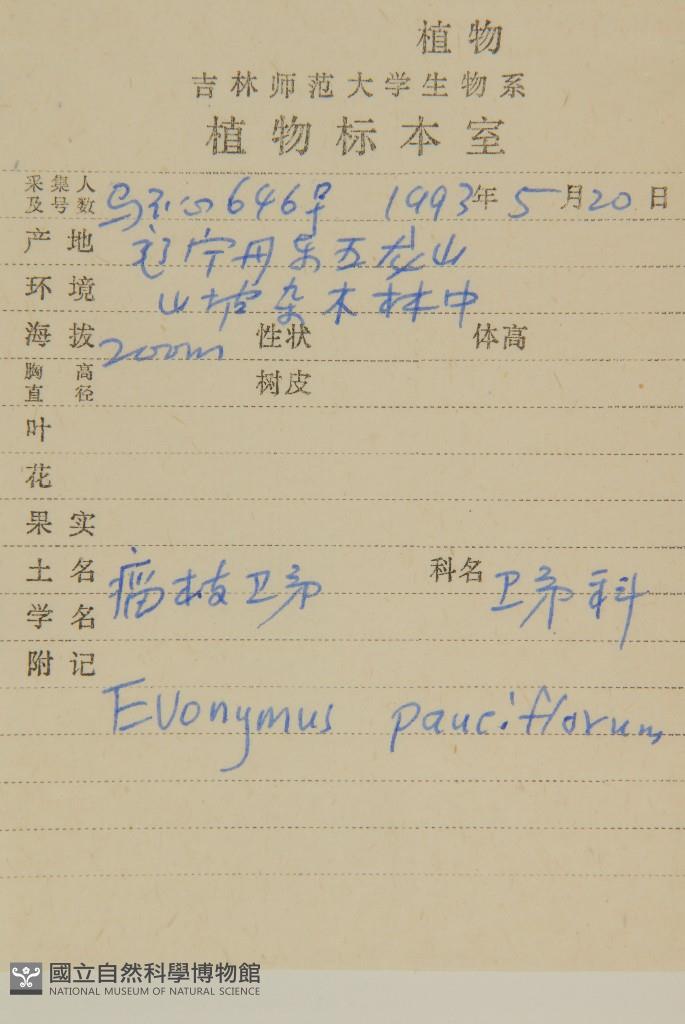 植物
吉林师范大学生物系
植物标本室
采集人及号数 646号 1993年5月20日
产地 辽宁丹东五龙山
环境 山坡杂木林中
海拔 200m 性状 体高
胸高直径 树皮
叶
花
果实
土名 瘤枝卫矛 科名 卫矛科
学名
附记
Evonymus pauciflorum
國立自然科學博物館
NATIONAL MUSEUM OF NATURAL SCIENCE